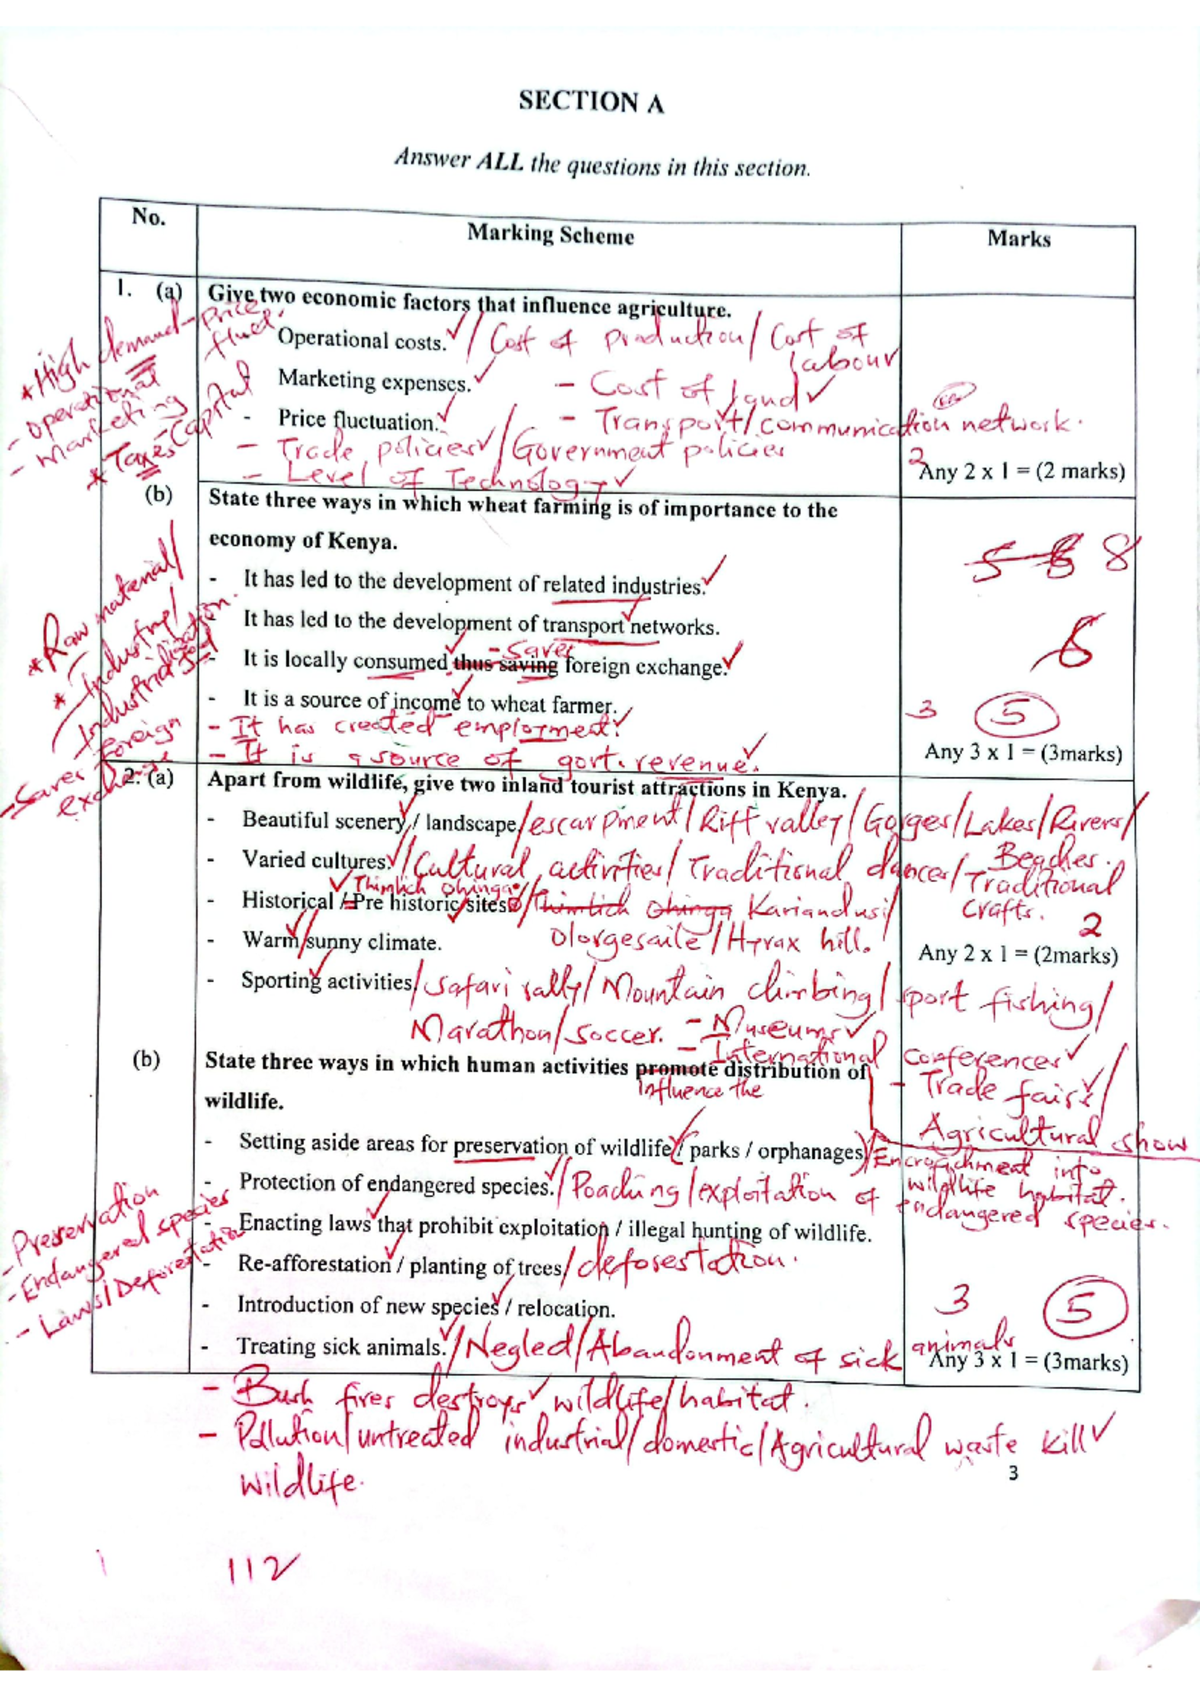 SECTION A
Answer ALL the questions in this section.
No. Marking Scheme Marks
1. (a) Give two economic factors that influence agriculture.
Operational costs. / Cost of production / Cost of labour
Marketing expenses. - Cost of land
- Price fluctuation. - Transport / communication network.
- Trade policies / Government policies
- Level of Technology
2
Any 2 x 1 = (2 marks)
* High demand - Price fluct.
- operational
- marketing
* Taxes - Capital
(b) State three ways in which wheat farming is of importance to the
economy of Kenya.
- It has led to the development of related industries.
It has led to the development of transport networks.
- Saves
It is locally consumed thus saving foreign exchange.
- It is a source of income to wheat farmer.
- It has created employment.
- It is a source of govt. revenue.
5 8 8
3 5
Any 3 x 1 = (3marks)
* Raw material /
* Industry /
Industrialization.
- Saves foreign
exchange
2. (a) Apart from wildlife, give two inland tourist attractions in Kenya.
- Beautiful scenery / landscape / escarpment / Riff valley / Gorges / Lakes / Rivers /
Beaches.
- Varied cultures. / Cultural activities / Traditional dances / Traditional
Crafts.
Thimlich Ohinga
- Historical / Pre historic sites / Thimlich Ohinga Kariandusi /
Olorgesailie / Hyrax hill.
- Warm / sunny climate.
2
Any 2 x 1 = (2marks)
- Sporting activities / Safari rally / Mountain climbing / sport fishing /
Marathon / soccer. - Museums
- International Conferences
- Trade fairs /
Agricultural show
(b) State three ways in which human activities promote distribution of
influence the
wildlife.
- Setting aside areas for preservation of wildlife / parks / orphanages / Encroachment into
wildlife habitat.
- Protection of endangered species. / Poaching / exploitation of endangered species.
- Enacting laws that prohibit exploitation / illegal hunting of wildlife.
- Re-afforestation / planting of trees / deforestation.
- Introduction of new species / relocation.
- Treating sick animals. / Negled / Abandonment of sick animals
3 5
Any 3 x 1 = (3marks)
- Preservation
- Endangered species
- Laws / Deforestation
- Bush fires destroys wildlife / habitat.
- Pollution / untreated industrial / domestic / Agricultural waste kill
wildlife.
3
112